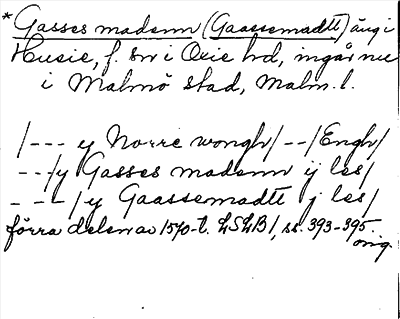 *Gasses madenn (Gaassemadtt) äng i
Husie, f. sn i Oxie hd, ingår nu
i Malmö stad, Malm. l.
/--- y Norre wongh/--/Engh/
---/y Gasses madenn ÿ les/
---/y Gaassemadtt j les/
förra delen av 1570-t. LSLB 1, ss. 393-395.
orig.